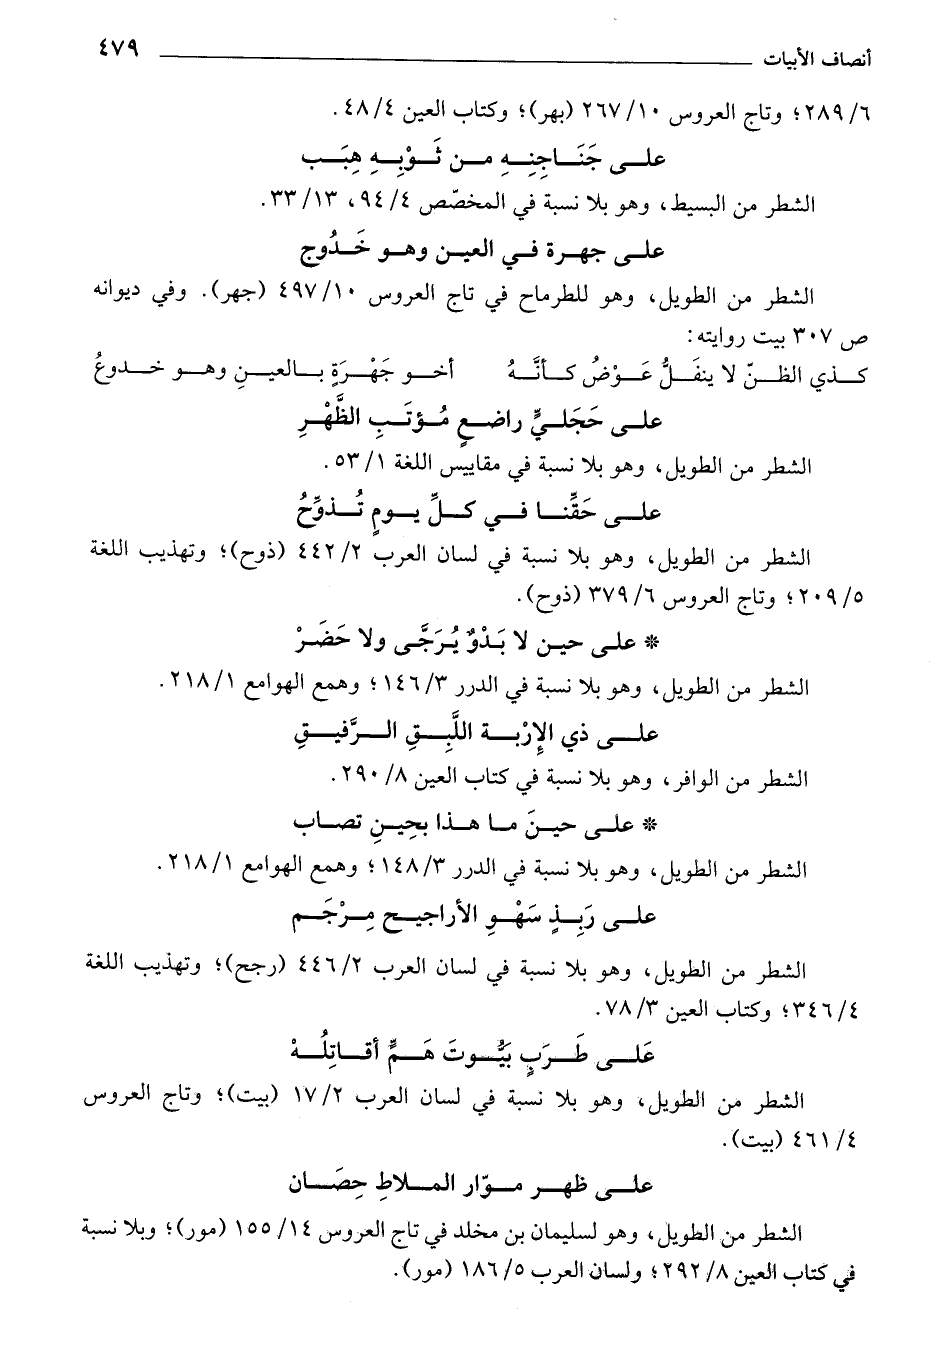 أنصاف الأبيات ٤٧٩
٢٨٩/٦؛ وتاج العروس ٢٦٧/١٠ (بهر)؛ وكتاب العين ٤٨/٤.
على جَنَاجِنِهِ من ثَوْبِهِ هِبَب
الشطر من البسيط، وهو بلا نسبة في المخصّص ٩٤/٤، ٣٣/١٣.
على جهرة في العين وهو خَدُوج
الشطر من الطويل، وهو للطرماح في تاج العروس ٤٩٧/١٠ (جهر). وفي ديوانه
ص ٣٠٧ بيت روايته:
كذي الظنّ لا ينفَلُّ عَوْضُ كأنَّهُ أخو جَهْرَةٍ بالعينِ وهو خدوعُ
على حَجَليٍّ راضعٍ مُؤتَبِ الظَّهْرِ
الشطر من الطويل، وهو بلا نسبة في مقاييس اللغة ٥٣/١.
على حَقِّنا في كلِّ يومٍ تُذوِّحُ
الشطر من الطويل، وهو بلا نسبة في لسان العرب ٤٤٢/٢ (ذوح)؛ وتهذيب اللغة
٢٠٩/٥؛ وتاج العروس ٣٧٩/٦ (ذوح).
* على حين لا بَدْوٌ يُرَجَّى ولا حَضَرْ
الشطر من الطويل، وهو بلا نسبة في الدرر ١٤٦/٣؛ وهمع الهوامع ٢١٨/١.
على ذي الإِرْبة اللَّبِقِ الرَّفيقِ
الشطر من الوافر، وهو بلا نسبة في كتاب العين ٢٩٠/٨.
* على حينَ ما هذا بحِينِ تصاب
الشطر من الطويل، وهو بلا نسبة في الدرر ١٤٨/٣؛ وهمع الهوامع ٢١٨/١.
على رَبِذٍ سَهْوِ الأراجيح مِرْجَم
الشطر من الطويل، وهو بلا نسبة في لسان العرب ٤٤٦/٢ (رجح)؛ وتهذيب اللغة
٣٤٦/٤؛ وكتاب العين ٧٨/٣.
عَلى طَرَبٍ بَيُّوتَ هَمٍّ أقاتِلُهْ
الشطر من الطويل، وهو بلا نسبة في لسان العرب ١٧/٢ (بيت)؛ وتاج العروس
٤٦١/٤ (بيت).
على ظهر موّار الملاطِ حِصَان
الشطر من الطويل، وهو لسليمان بن مخلد في تاج العروس ١٥٥/١٤ (مور)؛ وبلا نسبة
في كتاب العين ٢٩٢/٨؛ ولسان العرب ١٨٦/٥ (مور).